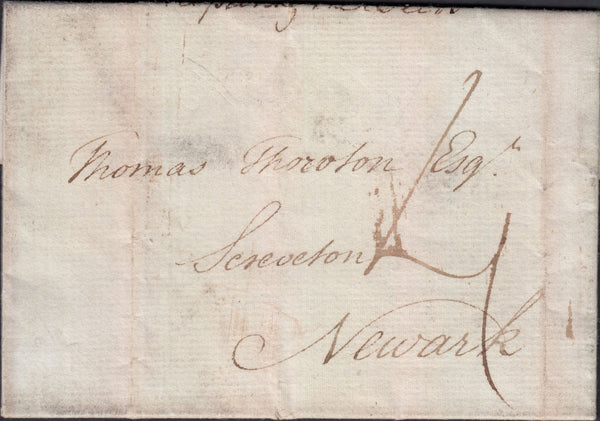 Thomas Thoroton Esqr.
Screveton
Newark